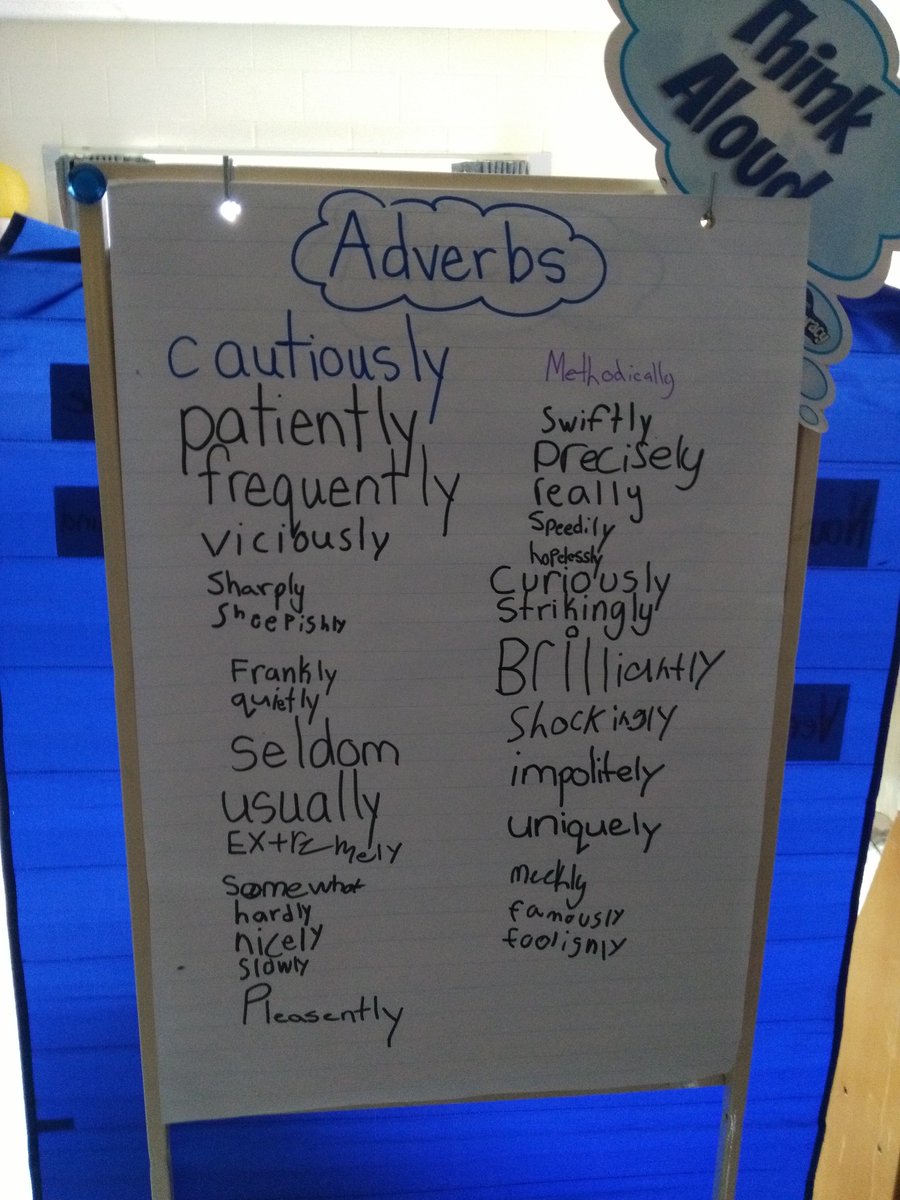 Think
Aloud
Adverbs
cautiously
patiently
frequently
viciously
Sharply
Sheepishly
Frankly
quietly
seldom
usually
Extremely
Somewhat
hardly
nicely
slowly
Pleasently
Methodically
Swiftly
Precisely
really
Speedily
hopelessly
Curiously
Strikingly
Brilliantly
Shockingly
impolitely
uniquely
meekly
famously
foolignly